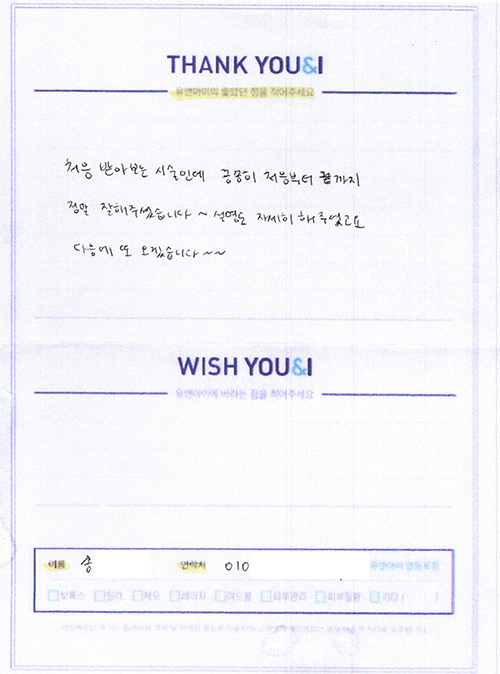 THANK YOU&I
유앤아이의 좋았던 점을 적어주세요
처음 받아보는 시술인데 꼼꼼히 처음부터 끝까지
정말 잘해주셨습니다 ~ 설명도 자세히 해주셨고요
다음에 또 오겠습니다 ~~
WISH YOU&I
유앤아이에 바라는 점을 적어주세요
이름 송 연락처 010 유앤아이 영등포점
보톡스 필러 제모 레이저 여드름 피부관리 피부질환 기타 ( )